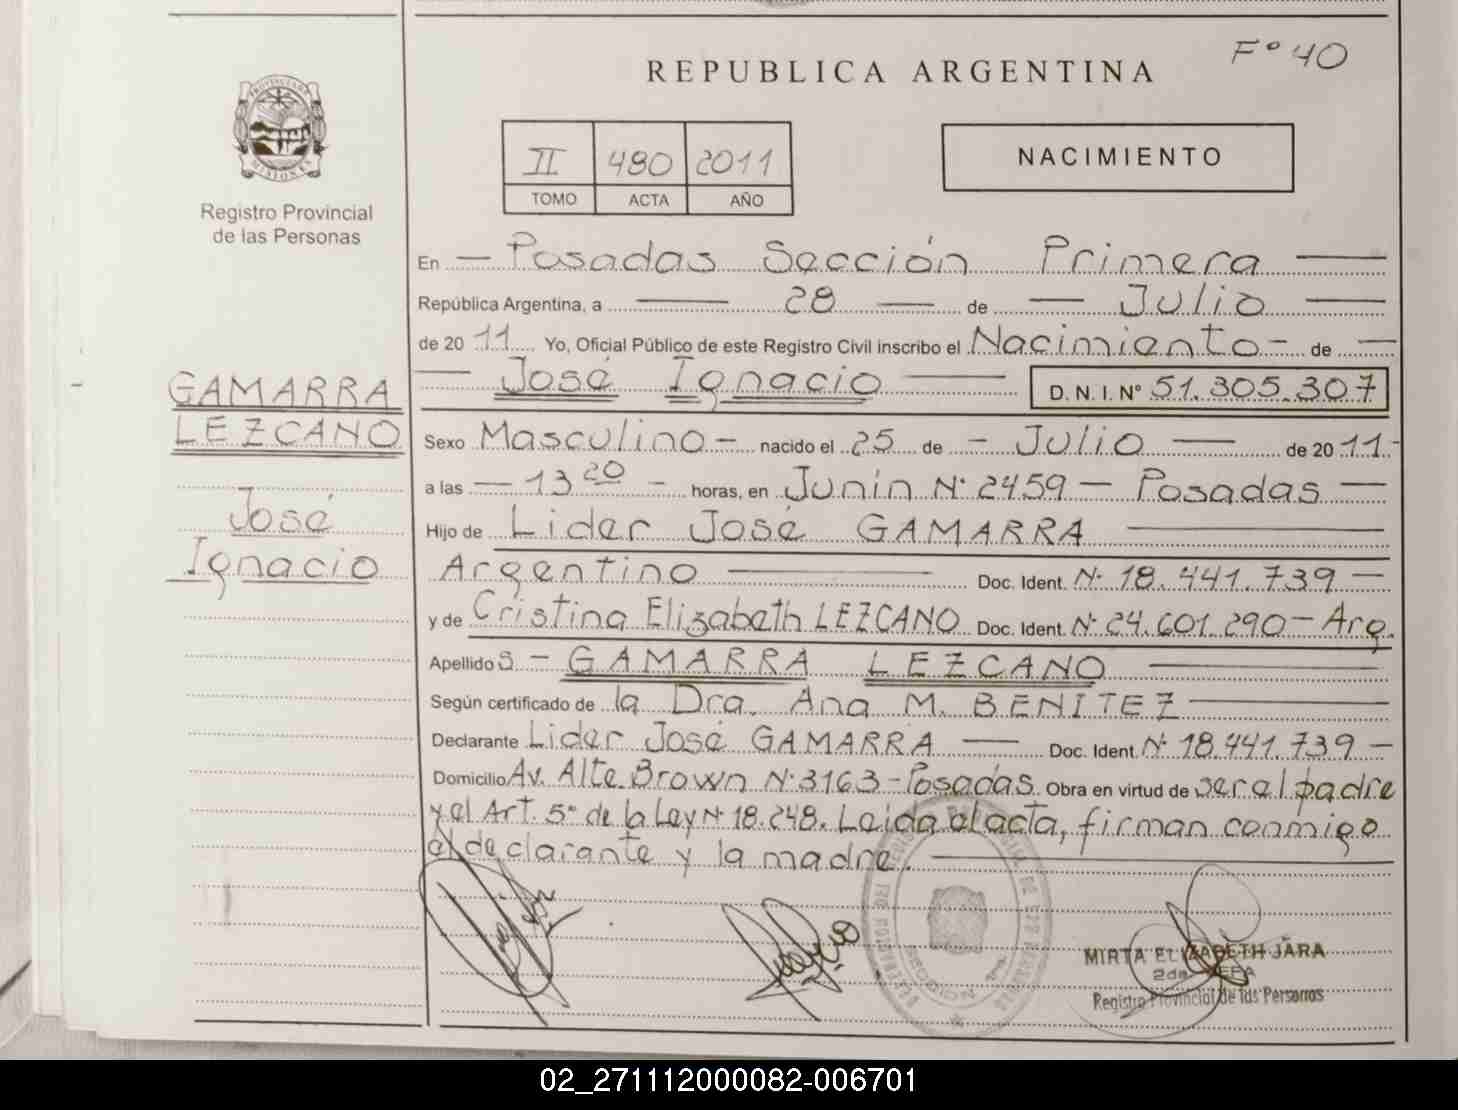 Fº 40
REPUBLICA ARGENTINA
PROVINCIA DE
MISIONES
Registro Provincial
de las Personas
II 480 2011
TOMO ACTA AÑO
NACIMIENTO
En Posadas Sección Primera
República Argentina, a 28 de Julio
de 2011 Yo, Oficial Público de este Registro Civil inscribo el Nacimiento - de
José Ignacio D.N.I. Nº 51.305.307
GAMARRA
LEZCANO
José
Ignacio
Sexo Masculino - nacido el 25 de - Julio de 2011-
a las - 13 20 - horas, en Junín Nº 2459 - Posadas
Hijo de Lider José GAMARRA
Argentino Doc. Ident. Nº 18.441.739 -
y de Cristina Elizabeth LEZCANO Doc. Ident. Nº 24.601.290 - Arg.
Apellidos - GAMARRA LEZCANO
Según certificado de la Dra. Ana M. BENÍTEZ
Declarante Lider José GAMARRA Doc. Ident. Nº 18.441.739 -
Domicilio Av. Alte. Brown Nº 3163 - Posadas. Obra en virtud de ser el padre
y el Art. 5º de la Ley Nº 18.248. Leida el acta, firman conmigo
el declarante y la madre.
MIRTA ELIZABETH JARA
2da JEFA
Registro Provincial de las Personas
02_271112000082-006701